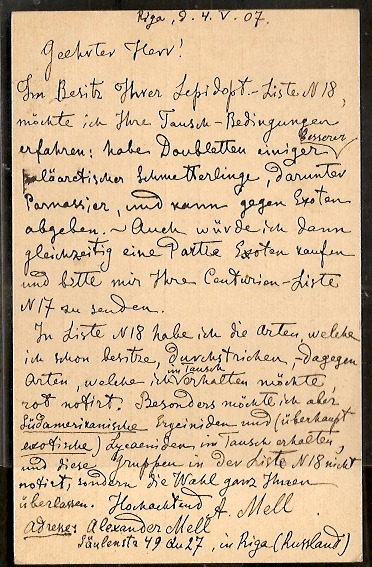 Riga, d. 4. V. 07.
Geehrter Herr!
Im Besitz Ihrer Lepidopt.-Liste N 18,
möchte ich Ihre Tausch-Bedingungen
erfahren: habe Doubletten einiger besserer
paläarctischer Schmetterlinge, darunter
Parnassier, und kann gegen Exoten
abgeben. ~ Auch würde ich dann
gleichzeitig eine Partie Exoten kaufen
und bitte mir Ihre Centurien-Liste
N 17 zu senden.
In Liste N 18 habe ich die Arten, welche
ich schon besitze, durchstrichen, - dagegen
Arten, welche ich in Tausch erhalten möchte,
rot notirt. Besonders möchte ich aber
südamerikanische Eryciniden und (überhaupt
exotische) Lycaeniden in Tausch erhalten,
und diese Gruppen in der Liste N 18 nicht
notirt, sondern die Wahl ganz Ihnen
überlassen. Hochachtend A. Mell.
Adresse: Alexander Mell
Säulenstr 49 Qu 27, in Riga (Russland)